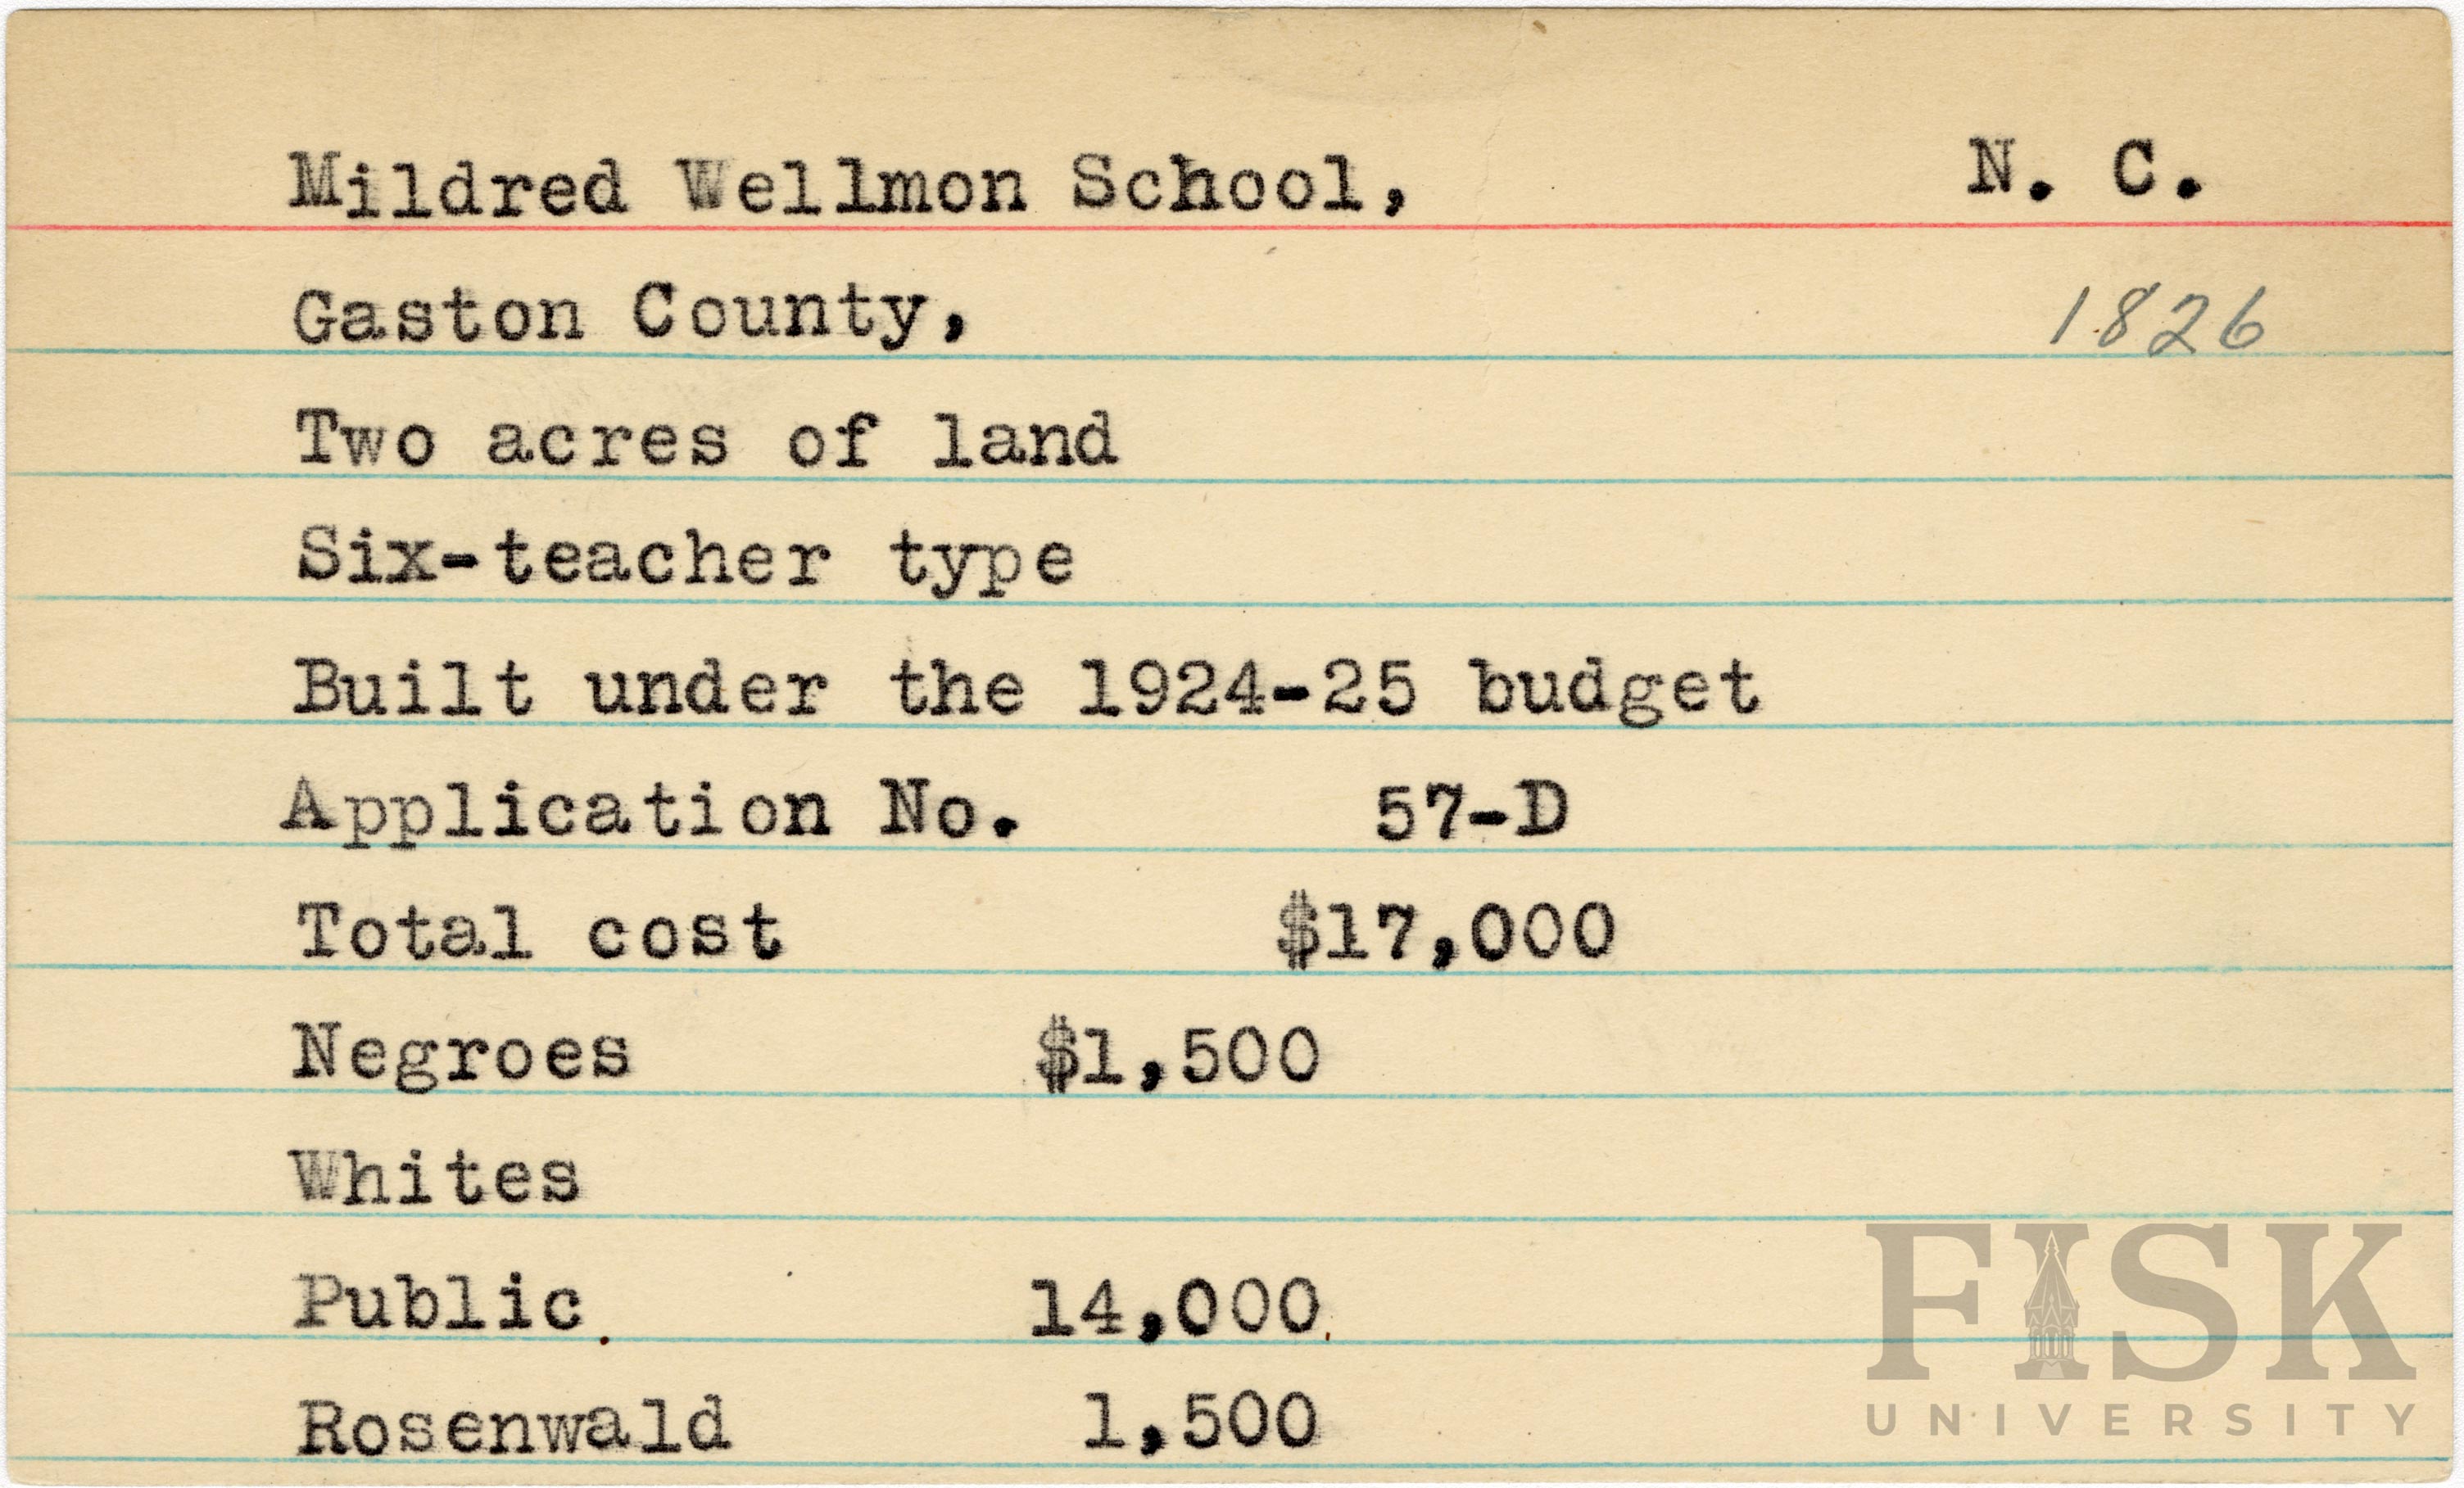 Mildred Wellmon School, N. C.
Gaston County, 1826
Two acres of land
Six-teacher type
Built under the 1924-25 budget
Application No. 57-D
Total cost $17,000
Negroes $1,500
Whites
Public 14,000
Rosenwald 1,500
FISK
UNIVERSITY